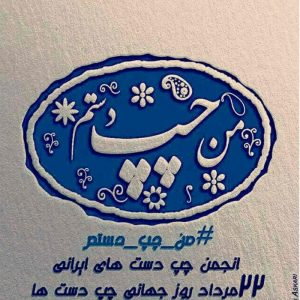 من چپ دستم
#من_چپ_دستم
انجمن چپ دست های ایرانی
۲۲مرداد روز جهانی چپ دست ها
ASKARI